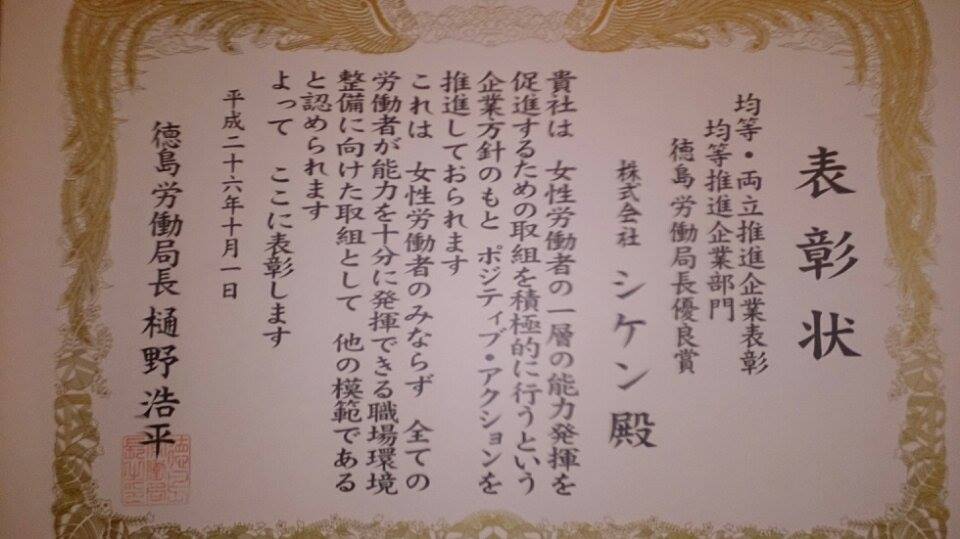 表彰状
均等・両立推進企業表彰
均等推進企業部門
徳島労働局長優良賞
株式会社 シケン 殿
貴社は 女性労働者の一層の能力発揮を
促進するための取組を積極的に行うという
企業方針のもと ポジティブ・アクションを
推進しておられます
これは 女性労働者のみならず 全ての
労働者が能力を十分に発揮できる職場環境
整備に向けた取組として 他の模範である
と認められます
よって ここに表彰します
平成二十六年十月一日
徳島労働局長 樋野浩平